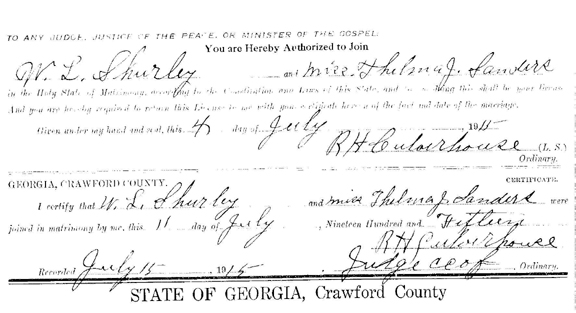 TO ANY JUDGE, JUSTICE OF THE PEACE, OR MINISTER OF THE GOSPEL:
You are Hereby Authorized to Join
W. L. Shurley and Miss. Thelma J. Sanders
in the Holy State of Matrimony, according to the Constitution and Laws of this State, and for so doing this shall be your license
And you are hereby required to return this License to me with your certificate hereon of the fact and date of the marriage.
Given under my hand and seal, this 4 day of July 1915
R H Culverhouse (L. S.)
Ordinary.
GEORGIA, CRAWFORD COUNTY. CERTIFICATE.
I certify that W. L. Shurley and Miss Thelma J. Sanders were
joined in matrimony by me, this 11 day of July, Nineteen Hundred and Fifteen
R H Culverhouse
Recorded July 15 1915 Judge CC of Ordinary.
STATE OF GEORGIA, Crawford County